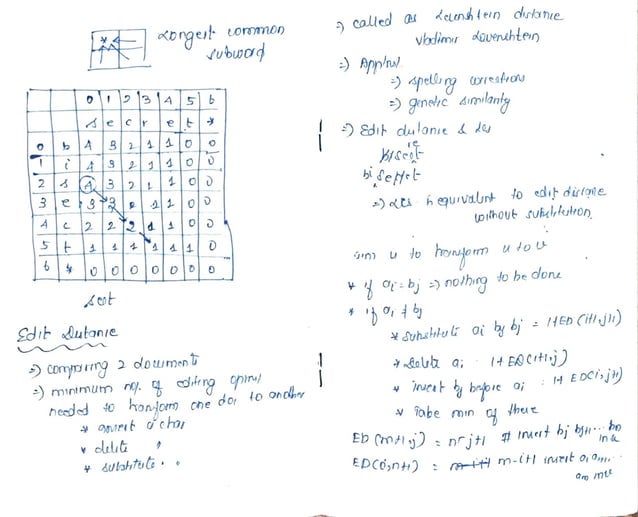 Longest common
subword
0 1 2 3 4 5 6
s e c r e t *
0 b 4 3 2 1 1 0 0
1 i 4 3 2 1 1 0 0
2 s 4 3 2 1 1 0 0
3 e 3 3 2 1 1 0 0
4 c 2 2 2 1 1 0 0
5 t 1 1 1 1 1 1 0
6 * 0 0 0 0 0 0 0
sect
Edit Distance
=) comparing 2 documents
=) minimum no. of editing
needed to transform one doc to another
* insert a char
* delete "
* substitute " "
=) called as Levenshtein distance
Vladimir Levenshtein
=)
=) spelling corrections
=) genetic similarity
=) Edit distance & LCS
bisect
bi secret
=) LCS is equivalent to edit distance
without substitution.
u to transform u to v
* if ai = bj =) nothing to be done
* if ai ≠ bj
* substitute ai by bj = 1+ED(i+1,j+1)
* delete ai 1+ED(i+1,j)
* insert bj before ai : 1+ ED(i,j+1)
* Take min of these
ED(m+1,j) = n-j+1 # insert bj bj+1... bn
in u
ED(i,n+1) = m-i+1 insert